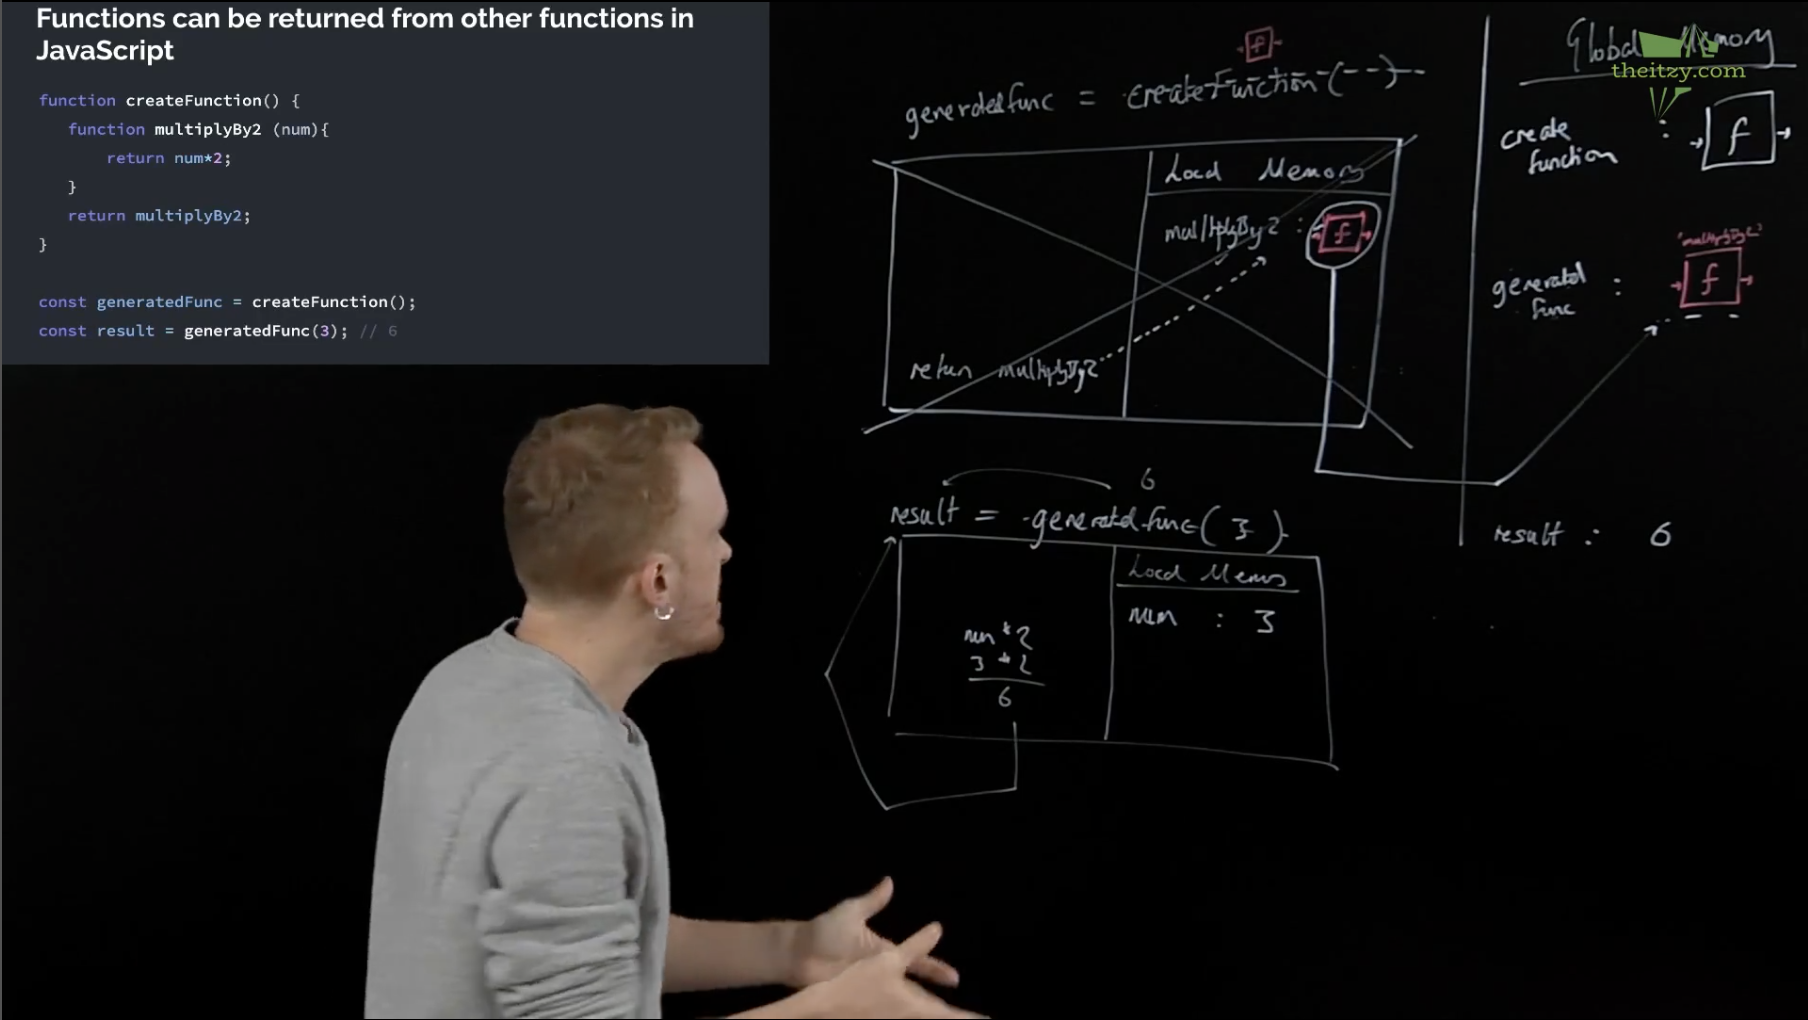 Functions can be returned from other functions in
JavaScript
function createFunction() {
function multiplyBy2 (num){
return num*2;
}
return multiplyBy2;
}
const generatedFunc = createFunction();
const result = generatedFunc(3); // 6
f
generatedfunc = createFunction(--)
Local Memory
multiplyBy2 : f
return multiplyBy2
6
result = generatedfunc(3)
Local Memory
num : 3
num*2
3*2
6
Global Memory
theitzy.com
create
function : f
"multiplyBy2"
generated
func : f
result : 6